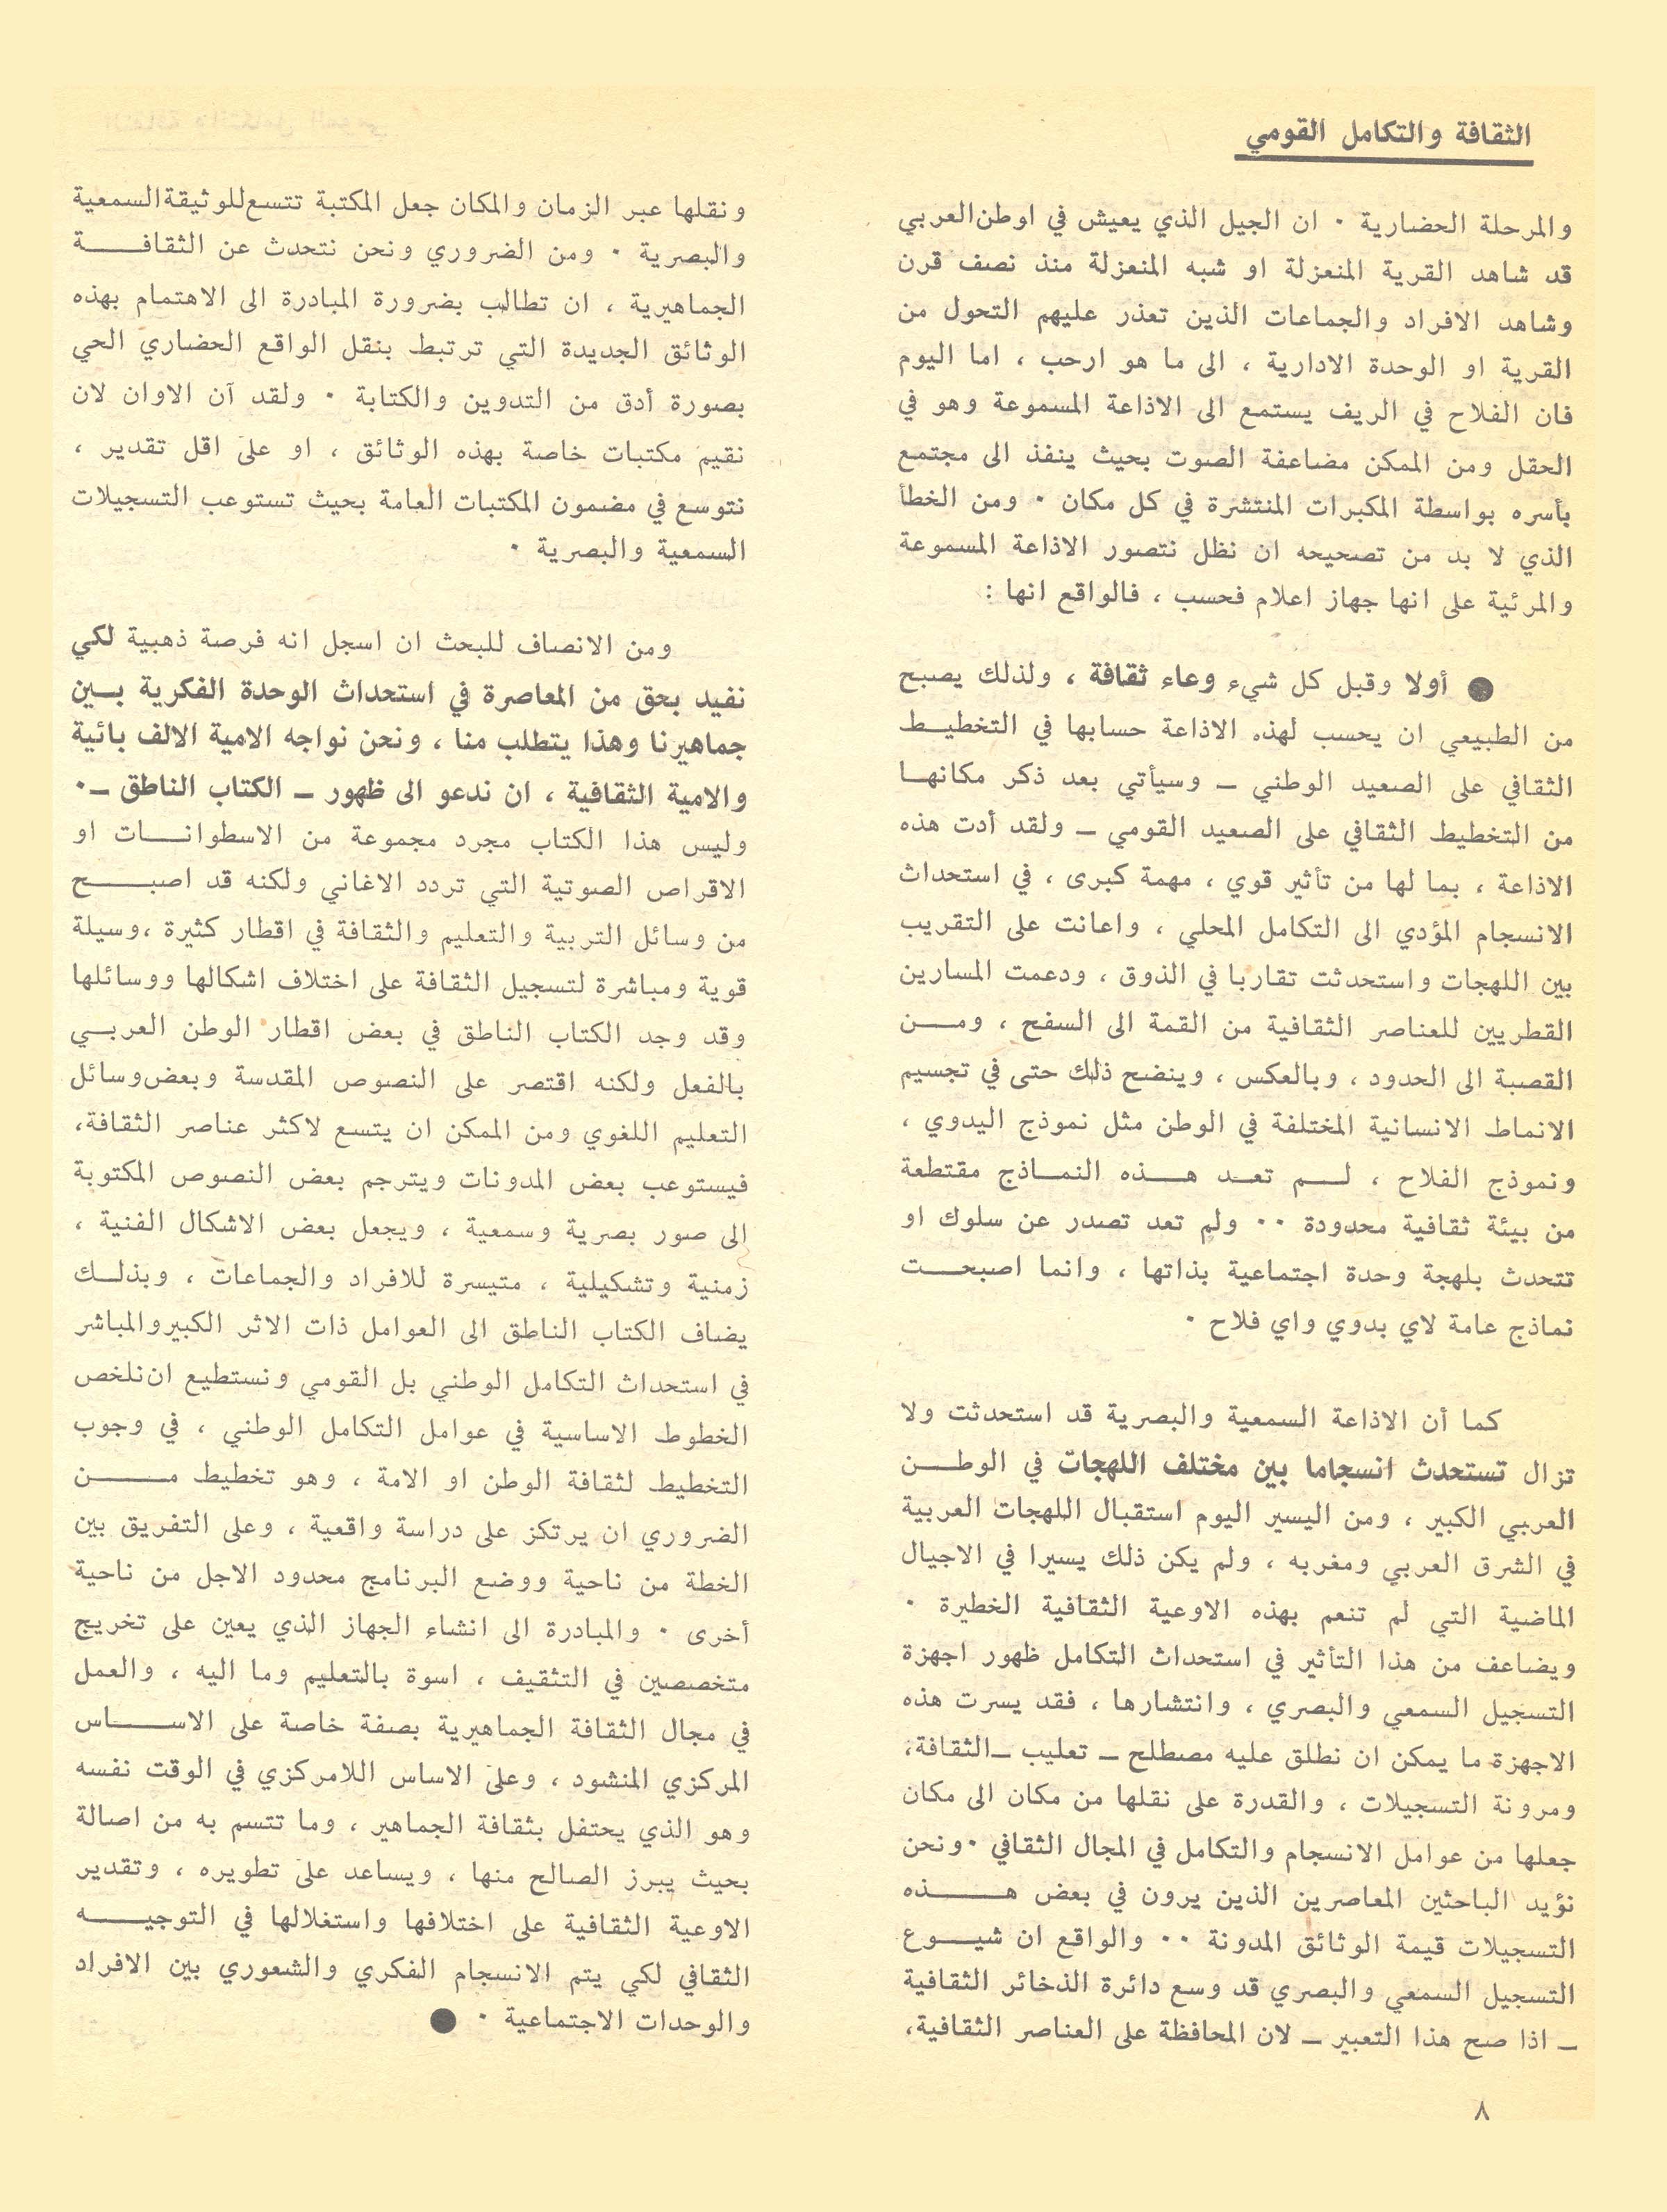 الثقافة والتكامل القومي
والمرحلة الحضارية ٠ ان الجيل الذي يعيش في اوطن العربي
قد شاهد القرية المنعزلة او شبه المنعزلة منذ نصف قرن
وشاهد الافراد والجماعات الذين تعذر عليهم التحول من
القرية او الوحدة الادارية ، الى ما هو ارحب ، اما اليوم
فان الفلاح في الريف يستمع الى الاذاعة المسموعة وهو في
الحقل ومن الممكن مضاعفة الصوت بحيث ينفذ الى مجتمع
بأسره بواسطة المكبرات المنتشرة في كل مكان ٠ ومن الخطأ
الذي لا بد من تصحيحه ان نظل نتصور الاذاعة المسموعة
والمرئية على انها جهاز اعلام فحسب ، فالواقع انها :
● أولا وقبل كل شيء وعاء ثقافة ، ولذلك يصبح
من الطبيعي ان يحسب لهذه الاذاعة حسابها في التخطيط
الثقافي على الصعيد الوطني ــ وسيأتي بعد ذكر مكانها
من التخطيط الثقافي على الصعيد القومي ــ ولقد أدت هذه
الاذاعة ، بما لها من تأثير قوي ، مهمة كبرى ، في استحداث
الانسجام المؤدي الى التكامل المحلي ، واعانت على التقريب
بين اللهجات واستحدثت تقاربا في الذوق ، ودعمت المسارين
القطريين للعناصر الثقافية من القمة الى السفح ، ومن
القصبة الى الحدود ، وبالعكس ، وينضح ذلك حتى في تجسيم
الانماط الانسانية المختلفة في الوطن مثل نموذج اليدوي ،
ونموذج الفلاح ، لم تعد هذه النماذج مقتطعة
من بيئة ثقافية محدودة ٠٠ ولم تعد تصدر عن سلوك او
تتحدث بلهجة وحدة اجتماعية بذاتها ، وانما اصبحت
نماذج عامة لاي بدوي واي فلاح ٠
كما أن الاذاعة السمعية والبصرية قد استحدثت ولا
تزال تستحدث انسجاما بين مختلف اللهجات في الوطن
العربي الكبير ، ومن اليسير اليوم استقبال اللهجات العربية
في الشرق العربي ومغربه ، ولم يكن ذلك يسيرا في الاجيال
الماضية التي لم تنعم بهذه الاوعية الثقافية الخطيرة ٠
ويضاعف من هذا التأثير في استحداث التكامل ظهور اجهزة
التسجيل السمعي والبصري ، وانتشارها ، فقد يسرت هذه
الاجهزة ما يمكن ان نطلق عليه مصطلح ــ تعليب ــ الثقافة،
ومرونة التسجيلات ، والقدرة على نقلها من مكان الى مكان
جعلها من عوامل الانسجام والتكامل في المجال الثقافي ٠ونحن
نؤيد الباحثين المعاصرين الذين يرون في بعض هذه
التسجيلات قيمة الوثائق المدونة ٠٠ والواقع ان شيوع
التسجيل السمعي والبصري قد وسع دائرة الذخائر الثقافية
ــ اذا صح هذا التعبير ــ لان المحافظة على العناصر الثقافية،
ونقلها عبر الزمان والمكان جعل المكتبة تتسع للوثيقة السمعية
والبصرية ٠ ومن الضروري ونحن نتحدث عن الثقافة
الجماهيرية ، ان تطالب بضرورة المبادرة الى الاهتمام بهذه
الوثائق الجديدة التي ترتبط بنقل الواقع الحضاري الحي
بصورة أدق من التدوين والكتابة ٠ ولقد آن الاوان لان
نقيم مكتبات خاصة بهذه الوثائق ، او على اقل تقدير ،
نتوسع في مضمون المكتبات العامة بحيث تستوعب التسجيلات
السمعية والبصرية ٠
ومن الانصاف للبحث ان اسجل انه فرصة ذهبية لكي
نفيد بحق من المعاصرة في استحداث الوحدة الفكرية بين
جماهيرنا وهذا يتطلب منا ، ونحن نواجه الامية الالف بائية
والامية الثقافية ، ان ندعو الى ظهور ــ الكتاب الناطق ــ٠
وليس هذا الكتاب مجرد مجموعة من الاسطوانات او
الاقراص الصوتية التي تردد الاغاني ولكنه قد اصبح
من وسائل التربية والتعليم والثقافة في اقطار كثيرة ،وسيلة
قوية ومباشرة لتسجيل الثقافة على اختلاف اشكالها ووسائلها
وقد وجد الكتاب الناطق في بعض اقطار الوطن العربي
بالفعل ولكنه اقتصر على النصوص المقدسة وبعض وسائل
التعليم اللغوي ومن الممكن ان يتسع لاكثر عناصر الثقافة،
فيستوعب بعض المدونات ويترجم بعض النصوص المكتوبة
الى صور بصرية وسمعية ، ويجعل بعض الاشكال الفنية ،
زمنية وتشكيلية ، متيسرة للافراد والجماعات ، وبذلك
يضاف الكتاب الناطق الى العوامل ذات الاثر الكبير والمباشر
في استحداث التكامل الوطني بل القومي ونستطيع ان نلخص
الخطوط الاساسية في عوامل التكامل الوطني ، في وجوب
التخطيط لثقافة الوطن او الامة ، وهو تخطيط من
الضروري ان يرتكز على دراسة واقعية ، وعلى التفريق بين
الخطة من ناحية ووضع البرنامج محدود الاجل من ناحية
أخرى ٠ والمبادرة الى انشاء الجهاز الذي يعين على تخريج
متخصصين في التثقيف ، اسوة بالتعليم وما اليه ، والعمل
في مجال الثقافة الجماهيرية بصفة خاصة على الاساس
المركزي المنشود ، وعلى الاساس اللامركزي في الوقت نفسه
وهو الذي يحتفل بثقافة الجماهير ، وما تتسم به من اصالة
بحيث يبرز الصالح منها ، ويساعد على تطويره ، وتقدير
الاوعية الثقافية على اختلافها واستغلالها في التوجيه
الثقافي لكي يتم الانسجام الفكري والشعوري بين الافراد
والوحدات الاجتماعية ٠ ●
٨